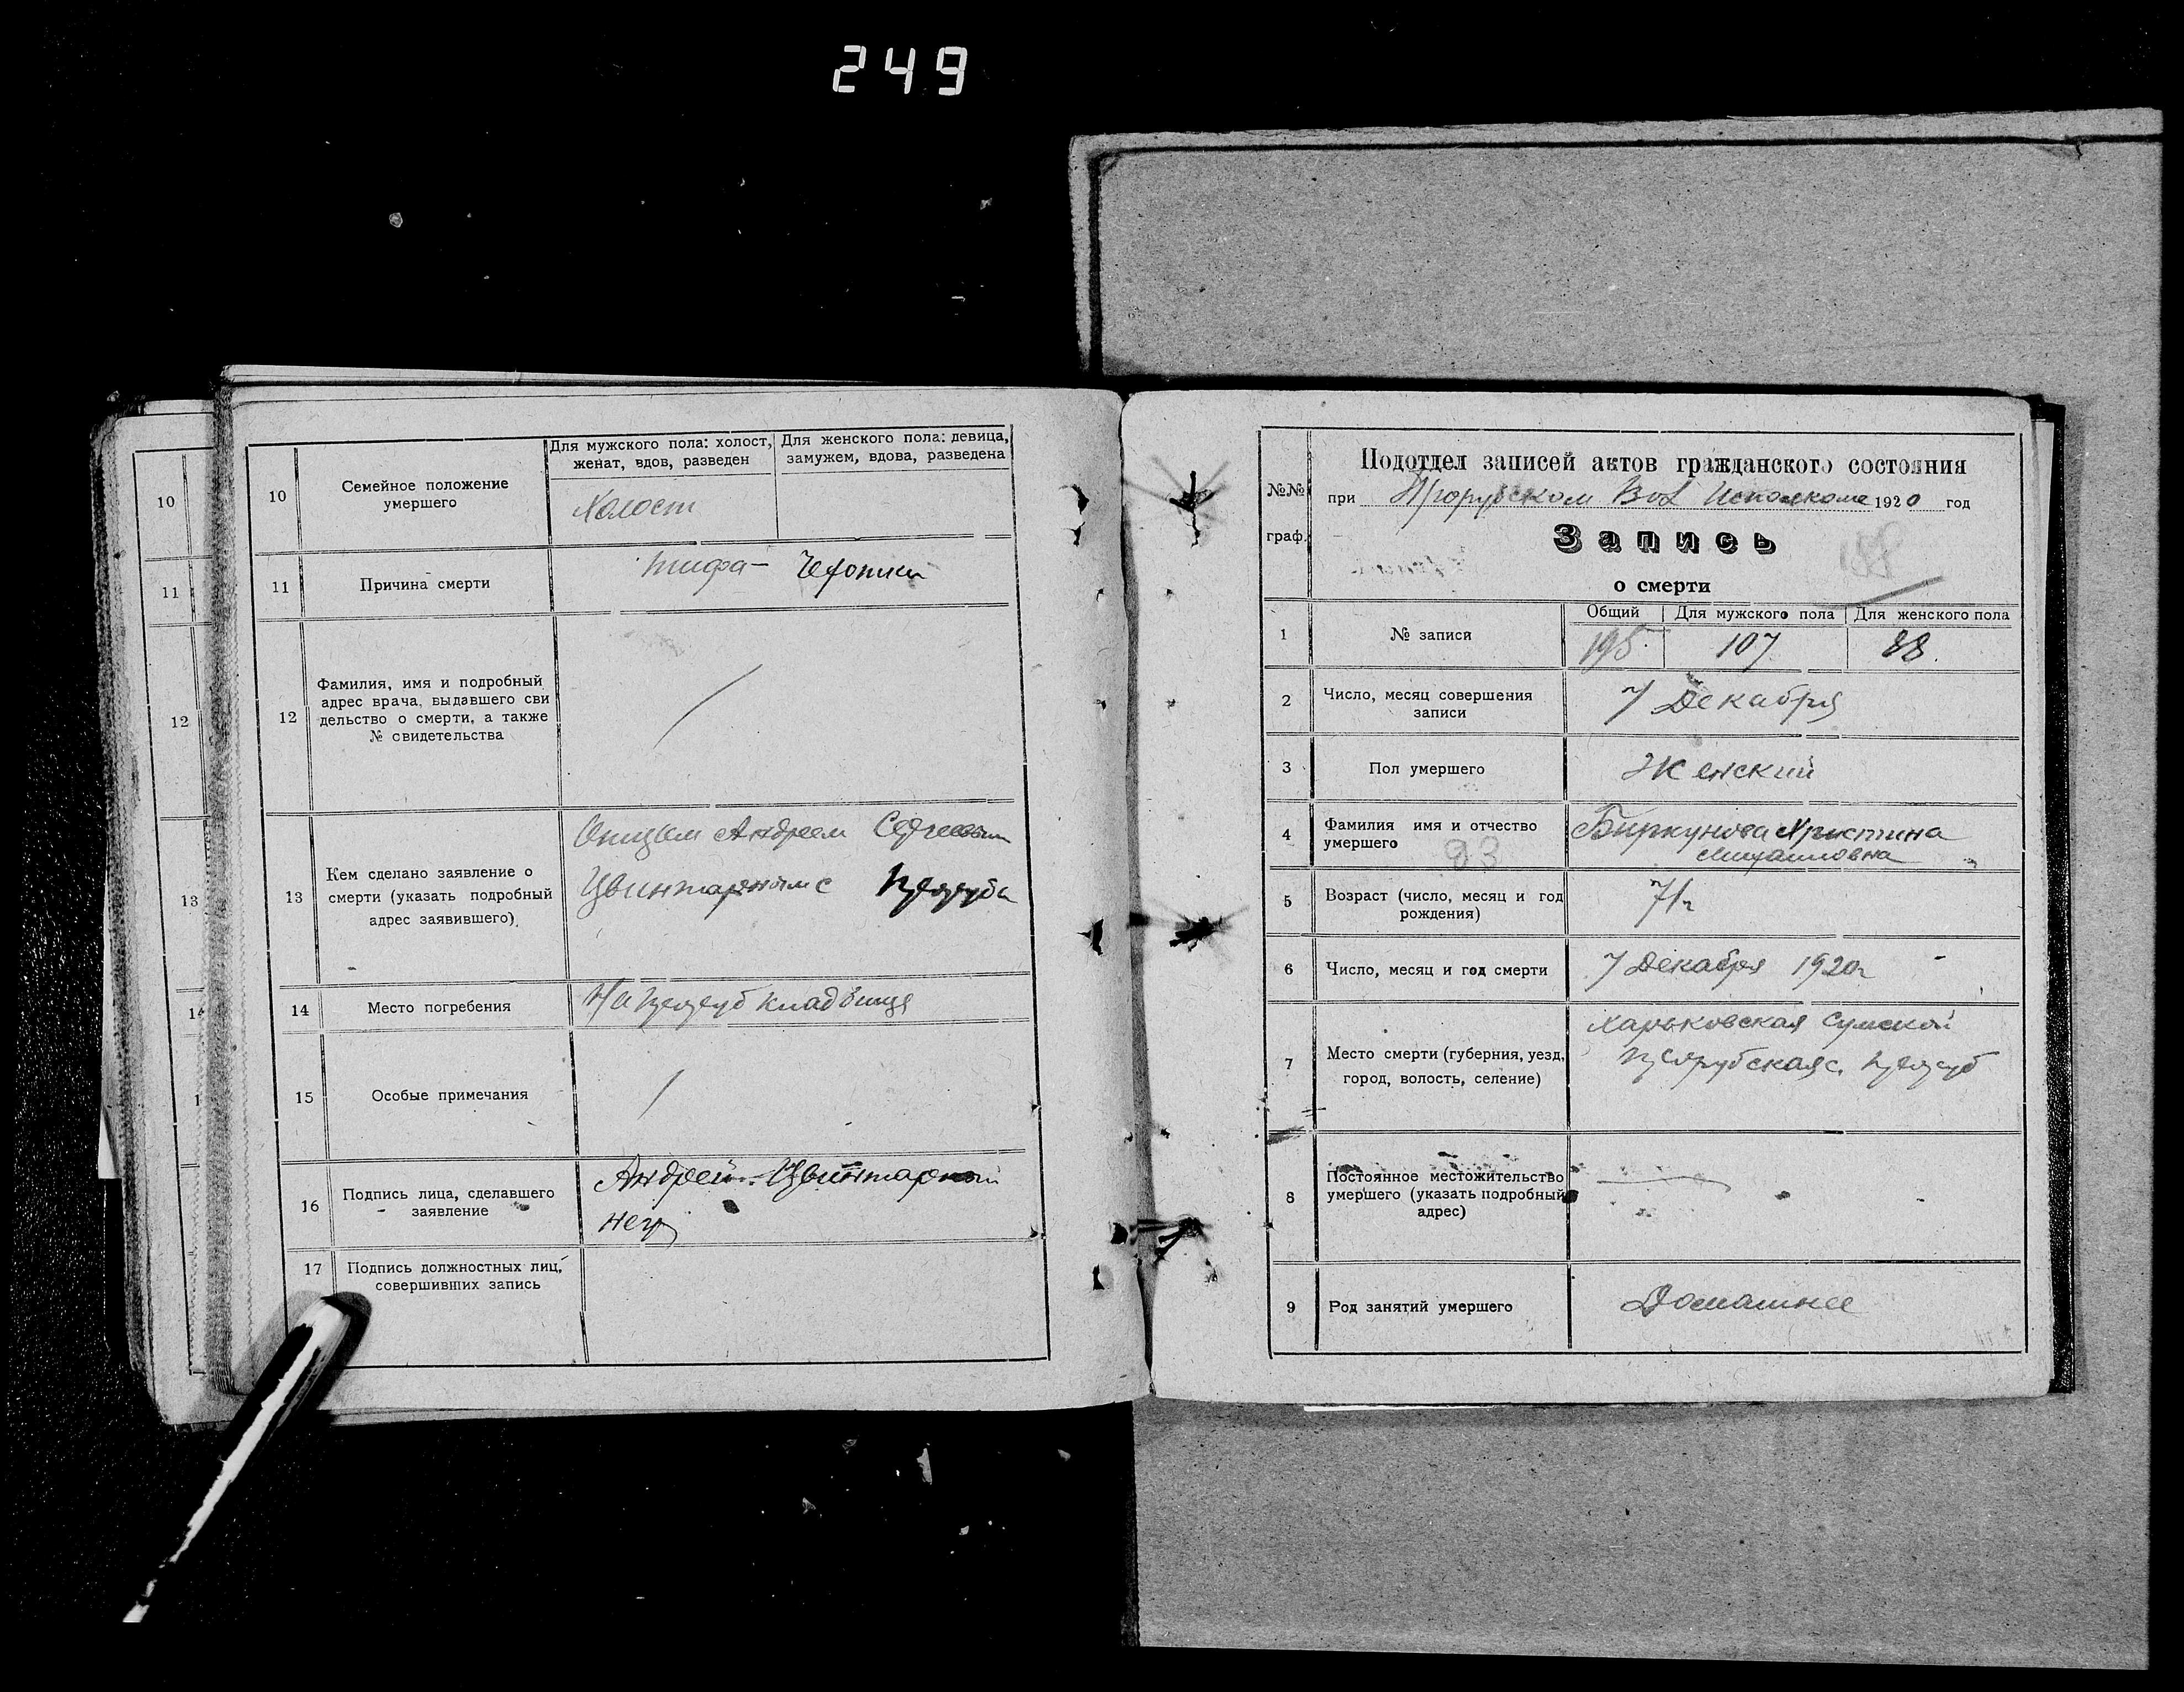 249
10
11
12
13
14
1
10
Семейное положение
умершего
Для мужского пола: холост,
женат, вдов, разведен
Для женского пола: девица,
замужем, вдова, разведена
Холост
11
Причина смерти
тифа —
12
Фамилия, имя и подробный
адрес врача, выдавшего сви
дельство о смерти, а также
№ свидетельства
13
Кем сделано заявление о
смерти (указать подробный
адрес заявившего)
Отцом Андреем
Цвинтарным с
14
Место погребения
На кладбище
15
Особые примечания
16
Подпись лица, сделавшего
заявление
Андрей Цвинтарный
17
Подпись должностных лиц,
совершивших запись
№№
граф.
Подотдел записей актов гражданского состояния
при Вол Исполкоме 1920 год
Запись
о смерти
188
1
№ записи
Общий
Для мужского пола
Для женского пола
195.
107
88.
2
Число, месяц совершения
записи
7 Декабря
3
Пол умершего
Женский
4
Фамилия имя и отчество
умершего
93
Биркунова Христина
Михайловна
5
Возраст (число, месяц и год
рождения)
71г
6
Число, месяц и год смерти
7 Декабря 1920г
7
Место смерти (губерния, уезд,
город, волость, селение)
Харьковская Сумской
8
Постоянное местожительство
умершего (указать подробный
адрес)
9
Род занятий умершего
Домашнее